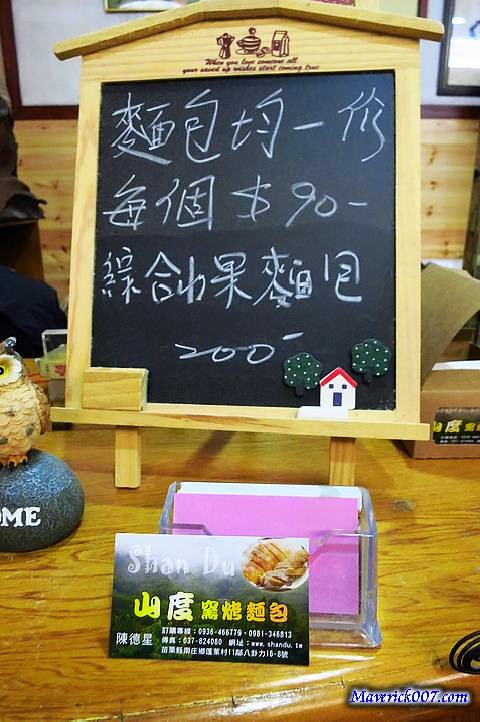 When you love someone all
your saved up wishes start coming true
麵包均一价
每個 $90-
綜合水果麵包
200-
OME
山度窯烤麵包
Shan Du
山度窯烤麵包
訂購專線：0936-466779、0981-346813
陳德星
傳真：037-824080 網址：www.shandu.tw
苗栗縣南庄鄉蓬萊村11鄰八卦力16-8號
Maverick007.com